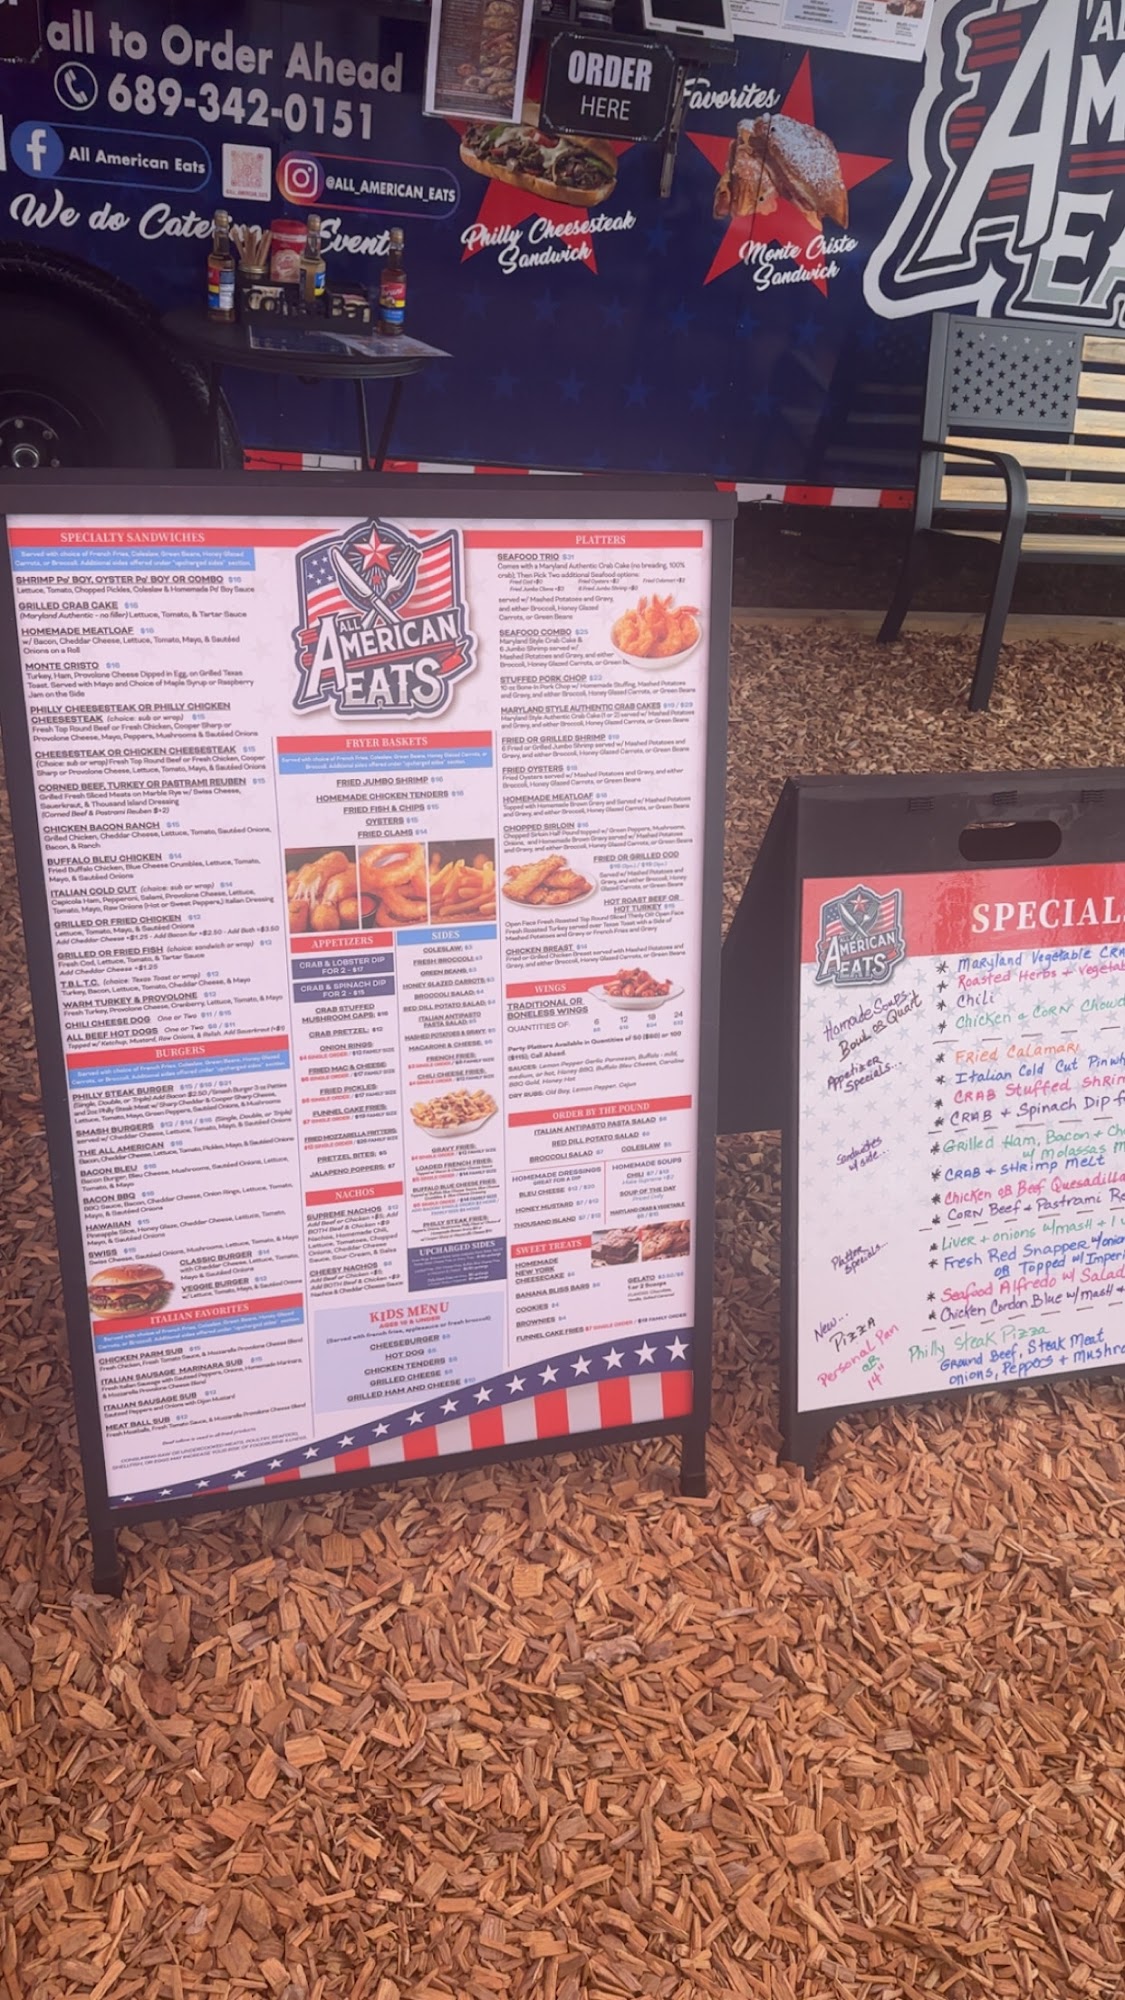 all to Order Ahead
689-342-0151
All American Eats
@ALL_AMERICAN_EATS
We do Catering Events
ORDER
HERE
Favorites
Philly Cheesesteak
Sandwich
Monte Cristo
Sandwich
SPECIALTY SANDWICHES
Served with choice of French Fries, Coleslaw, Green Beans, Honey Glazed
Carrots, or Broccoli. Additional sides offered under "upcharged sides" section.
SHRIMP Po' BOY, OYSTER Po' BOY OR COMBO $16
Lettuce, Tomato, Chopped Pickles, Coleslaw & Homemade Po' Boy Sauce
GRILLED CRAB CAKE $16
(Maryland Authentic - no filler) Lettuce, Tomato, & Tartar Sauce
HOMEMADE MEATLOAF $16
w/ Bacon, Cheddar Cheese, Lettuce, Tomato, Mayo, & Sautéed
Onions on a Roll
MONTE CRISTO $16
Turkey, Ham, Provolone Cheese Dipped in Egg, on Grilled Texas
Toast. Served with Mayo and Choice of Maple Syrup or Raspberry
Jam on the Side
PHILLY CHEESESTEAK OR PHILLY CHICKEN
CHEESESTEAK (choice: sub or wrap) $15
Fresh Top Round Beef or Fresh Chicken, Cooper Sharp or
Provolone Cheese, Mayo, Peppers, Mushrooms & Sautéed Onions
CHEESESTEAK OR CHICKEN CHEESESTEAK $15
(Choice: sub or wrap) Fresh Top Round Beef or Fresh Chicken, Cooper
Sharp or Provolone Cheese, Lettuce, Tomato, Mayo, & Sautéed Onions
CORNED BEEF, TURKEY OR PASTRAMI REUBEN $15
Grilled Fresh Sliced Meats on Marble Rye w/ Swiss Cheese,
Sauerkraut, & Thousand Island Dressing
(Corned Beef & Pastrami Reuben $+2)
CHICKEN BACON RANCH $15
Grilled Chicken, Cheddar Cheese, Lettuce, Tomato, Sautéed Onions,
Bacon, & Ranch
BUFFALO BLEU CHICKEN $14
Fried Buffalo Chicken, Blue Cheese Crumbles, Lettuce, Tomato,
Mayo, & Sautéed Onions
ITALIAN COLD CUT (choice: sub or wrap) $14
Capicola Ham, Pepperoni, Salami, Provolone Cheese, Lettuce,
Tomato, Mayo, Raw Onions (Hot or Sweet Peppers,) Italian Dressing
GRILLED OR FRIED CHICKEN $12
Lettuce, Tomato, Mayo, & Sautéed Onions
Add Cheddar Cheese +$1.25 - Add Bacon for +$2.50 - Add Both +$3.50
GRILLED OR FRIED FISH (choice: sandwich or wrap) $13
Fresh Cod, Lettuce, Tomato, & Tartar Sauce
Add Cheddar Cheese +$1.25
T.B.L.T.C. (choice: Texas Toast or wrap) $12
Turkey, Bacon, Lettuce, Tomato, Cheddar Cheese, & Mayo
WARM TURKEY & PROVOLONE $12
Fresh Turkey, Provolone Cheese, Cranberry, Lettuce, Tomato, & Mayo
CHILI CHEESE DOG One or Two $11 / $15
ALL BEEF HOT DOGS One or Two $8 / $11
Topped w/ Ketchup, Mustard, Raw Onions, & Relish. Add Sauerkraut (+$1)
BURGERS
PHILLY STEAK BURGER $15 / $18 / $21
SMASH BURGERS $12 / $14 / $16 (Single, Double, or Triple)
served w/ Cheddar Cheese, Lettuce, Tomato, Mayo, & Sautéed Onions
THE ALL AMERICAN $16
Bacon, Cheddar Cheese, Lettuce, Tomato, Pickles, Mayo, & Sautéed Onions
BACON BLEU $16
Bacon Burger, Bleu Cheese, Mushrooms, Sautéed Onions, Lettuce,
Tomato, & Mayo
BACON BBQ $15
BBQ Sauce, Bacon, Cheddar Cheese, Onion Rings, Lettuce, Tomato,
Mayo, & Sautéed Onions
HAWAIIAN $15
Pineapple Slice, Honey Glaze, Cheddar Cheese, Lettuce, Tomato,
Mayo, & Sautéed Onions
SWISS $15
Swiss Cheese, Sautéed Onions, Mushrooms, Lettuce, Tomato, & Mayo
CLASSIC BURGER $14
Cheddar Cheese, Lettuce, Tomato,
Mayo & Sautéed Onions
VEGGIE BURGER $13
Lettuce, Tomato, Mayo, & Sautéed Onions
ITALIAN FAVORITES
CHICKEN PARM SUB $15
Fresh Chicken, Fresh Tomato Sauce, & Mozzarella Provolone Cheese Blend
ITALIAN SAUSAGE MARINARA SUB $15
Fresh Italian Sausage with Sauteed Peppers, Onions, Homemade Marinara,
& Mozzarella Provolone Cheese Blend
ITALIAN SAUSAGE SUB $13
Sauteed Peppers and Onions with Dijon Mustard
MEAT BALL SUB $13
Fresh Meatballs, Fresh Tomato Sauce, & Mozzarella Provolone Cheese Blend
CONSUMING RAW OR UNDERCOOKED MEATS, POULTRY, SEAFOOD,
SHELLFISH, OR EGGS MAY INCREASE YOUR RISK OF FOODBORNE ILLNESS.
ALL
AMERICAN
EATS
FRYER BASKETS
Served with choice of French Fries, Coleslaw, Green Beans, Honey Glazed Carrots, or
Broccoli. Additional sides offered under "upcharged sides" section.
FRIED JUMBO SHRIMP $16
HOMEMADE CHICKEN TENDERS $16
FRIED FISH & CHIPS $15
OYSTERS $15
FRIED CLAMS $14
APPETIZERS
CRAB & LOBSTER DIP
FOR 2 - $17
CRAB & SPINACH DIP
FOR 2 - $15
CRAB STUFFED
MUSHROOM CAPS: $15
CRAB PRETZEL: $12
ONION RINGS:
FRIED MAC & CHEESE:
FRIED PICKLES:
FUNNEL CAKE FRIES:
FRIED MOZZARELLA FRITTERS:
PRETZEL BITES: $5
JALAPENO POPPERS: $7
NACHOS
SUPREME NACHOS $12
Add Beef or Chicken +$5, Add
BOTH Beef & Chicken +$9
Nachos, Homemade Chili,
Lettuce, Tomatoes, Chopped
Onions, Cheddar Cheese
Sauce, Sour Cream, & Salsa
CHEESY NACHOS $8
Add Beef or Chicken +$5
Add BOTH Beef & Chicken +$9
Nachos & Cheddar Cheese Sauce
SIDES
COLESLAW: $3
FRESH BROCCOLI: $3
GREEN BEANS: $3
HONEY GLAZED CARROTS: $3
BROCCOLI SALAD: $4
RED DILL POTATO SALAD: $4
ITALIAN ANTIPASTO
PASTA SALAD: $5
MASHED POTATOES & GRAVY: $5
MACARONI & CHEESE: $5
FRENCH FRIES:
CHILI CHEESE FRIES:
GRAVY FRIES:
LOADED FRENCH FRIES:
BUFFALO BLUE CHEESE FRIES:
PHILLY STEAK FRIES:
UPCHARGED SIDES
KIDS MENU
AGES 10 & UNDER
(Served with french fries, applesauce or fresh broccoli)
CHEESEBURGER $8
HOT DOG $8
CHICKEN TENDERS $8
GRILLED CHEESE $8
GRILLED HAM AND CHEESE $10
PLATTERS
SEAFOOD TRIO $31
Comes with a Maryland Authentic Crab Cake (no breading, 100%
crab); Then Pick Two additional Seafood options:
served w/ Mashed Potatoes and Gravy,
and either Broccoli, Honey Glazed
Carrots, or Green Beans
SEAFOOD COMBO $25
Maryland Style Crab Cake &
6 Jumbo Shrimp served w/
Mashed Potatoes and Gravy, and either
Broccoli, Honey Glazed Carrots, or Green B
STUFFED PORK CHOP $22
10 oz Bone-in Pork Chop w/ Homemade Stuffing, Mashed Potatoes
and Gravy, and either Broccoli, Honey Glazed Carrots, or Green Beans
MARYLAND STYLE AUTHENTIC CRAB CAKES $19 / $29
Maryland Style Authentic Crab Cake (1 or 2) served w/ Mashed Potatoes
and Gravy, and either Broccoli, Honey Glazed Carrots, or Green Beans
FRIED OR GRILLED SHRIMP $19
6 Fried or Grilled Jumbo Shrimp served w/ Mashed Potatoes and
Gravy, and either Broccoli, Honey Glazed Carrots, or Green Beans
FRIED OYSTERS $18
Fried Oysters served w/ Mashed Potatoes and Gravy, and either
Broccoli, Honey Glazed Carrots, or Green Beans
HOMEMADE MEATLOAF $18
Topped with Homemade Brown Gravy and Served w/ Mashed Potatoes
and Gravy, and either Broccoli, Honey Glazed Carrots, or Green Beans
CHOPPED SIRLOIN $16
Chopped Sirloin Half Pound topped w/ Green Peppers, Mushrooms,
Onions, and Homemade Brown Gravy served w/ Mashed Potatoes
and Gravy, and either Broccoli, Honey Glazed Carrots, or Green Beans
FRIED OR GRILLED COD
Served w/ Mashed Potatoes
and Gravy, and either
Broccoli, Honey Glazed
Carrots, or Green Beans
HOT ROAST BEEF OR
HOT TURKEY $15
Open Face Fresh Roasted Top Round Sliced Thinly OR Open Face
Fresh Roasted Turkey served over Texas Toast with a Side of
Mashed Potatoes and Gravy or French Fries and Gravy
CHICKEN BREAST $14
Fried or Grilled Chicken Breast served with Mashed Potatoes and
Gravy, and either Broccoli, Honey Glazed Carrots, or Green Beans
WINGS
TRADITIONAL OR
BONELESS WINGS
QUANTITIES OF: 6 12 18 24
Party Platters Available in Quantities of 50 ($60) or 100
($115); Call Ahead.
SAUCES: Lemon Pepper Garlic Parmesan, Buffalo - mild,
medium, or hot, Honey BBQ, Buffalo Bleu Cheese, Carolina
BBQ Gold, Honey Hot
DRY RUBS: Old Bay, Lemon Pepper, Cajun
ORDER BY THE POUND
ITALIAN ANTIPASTO PASTA SALAD
RED DILL POTATO SALAD
BROCCOLI SALAD $7 COLESLAW $5
HOMEMADE DRESSINGS
GREAT FOR A DIP
BLEU CHEESE $12 / $20
HONEY MUSTARD $7 / $12
THOUSAND ISLAND $7 / $12
HOMEMADE SOUPS
CHILI $7 / $12
SOUP OF THE DAY
MARYLAND CRAB & VEGETABLE
SWEET TREATS
HOMEMADE
NEW YORK
CHEESECAKE
BANANA BLISS BARS
COOKIES $4
BROWNIES $4
GELATO
FUNNEL CAKE FRIES $7 SINGLE ORDER / $15 FAMILY ORDER
AMERICAN
EATS
SPECIAL
Homade Soups
Bowl or Quart
* Maryland Vegetable CRA
* Roasted Herbs + Vegetab
* Chili
* Chicken & CORN Chowd
Appetizer
Specials...
* Fried Calamari
* Italian Cold Cut Pinwh
* CRAB Stuffed Shrim
* CRAB + Spinach Dip f
Sandwiches
w/ side...
* Grilled Ham, Bacon + Che
w/ Molassas M
* CRAB + SHrimp melt
* Chicken OR Beef Quesadilla
* CORN Beef & Pastrami Re
Platter
Specials...
* Liver + onions w/mash + 1 v
* Fresh Red Snapper w/onion
OR Topped w/ Imperi
* Seafood Alfredo w/ Salad
* Chicken Cordon Blue w/ mash +
New...
PizzA
Personal Pan
OR
14"
Philly Steak Pizza
Ground Beef, Steak Meat
onions, Peppers + Mushro